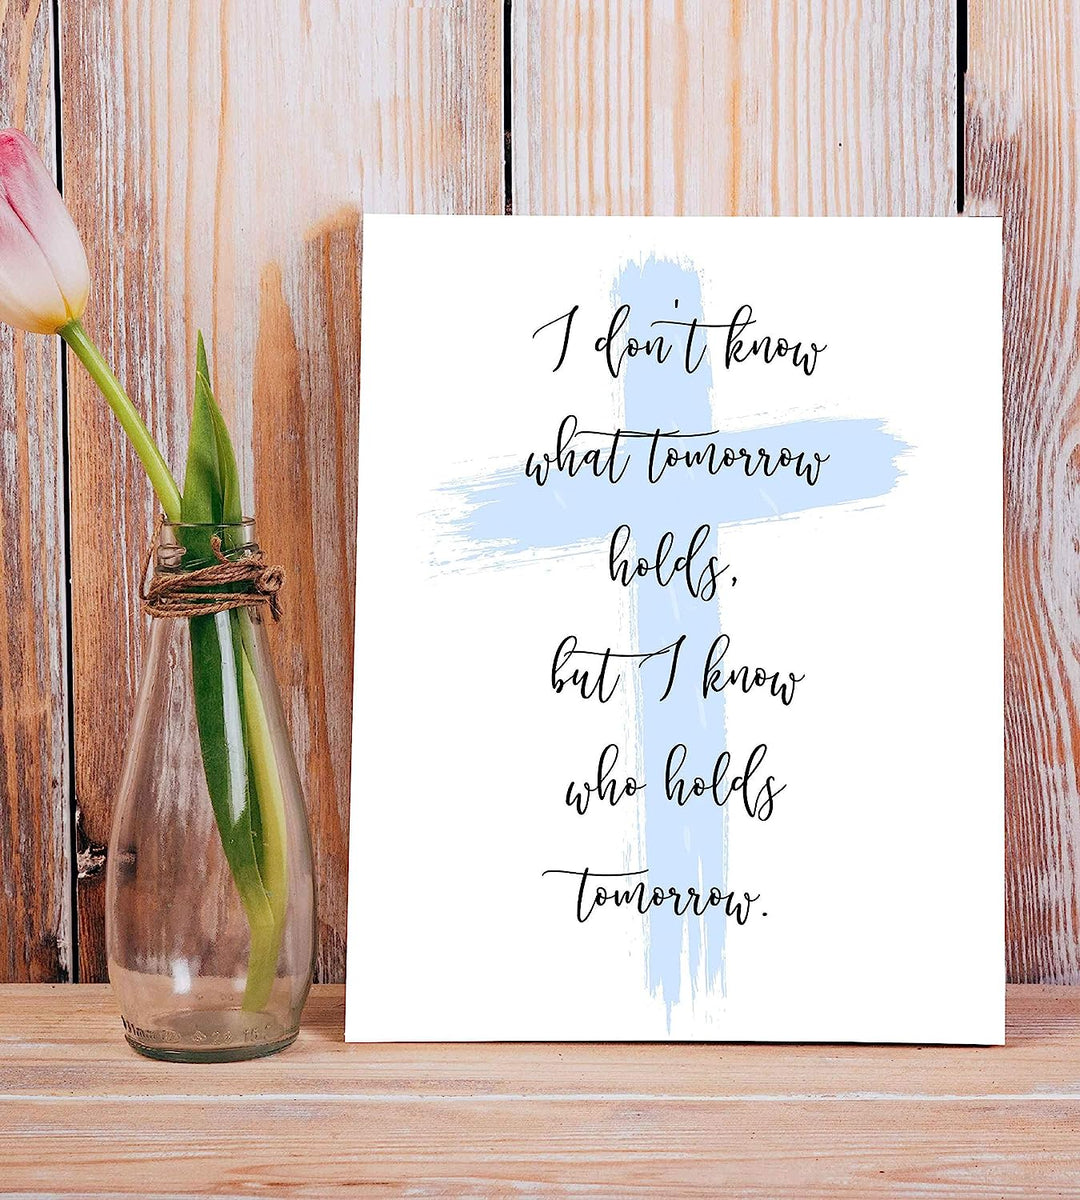 I don't know
what tomorrow
holds,
but I know
who holds
tomorrow.